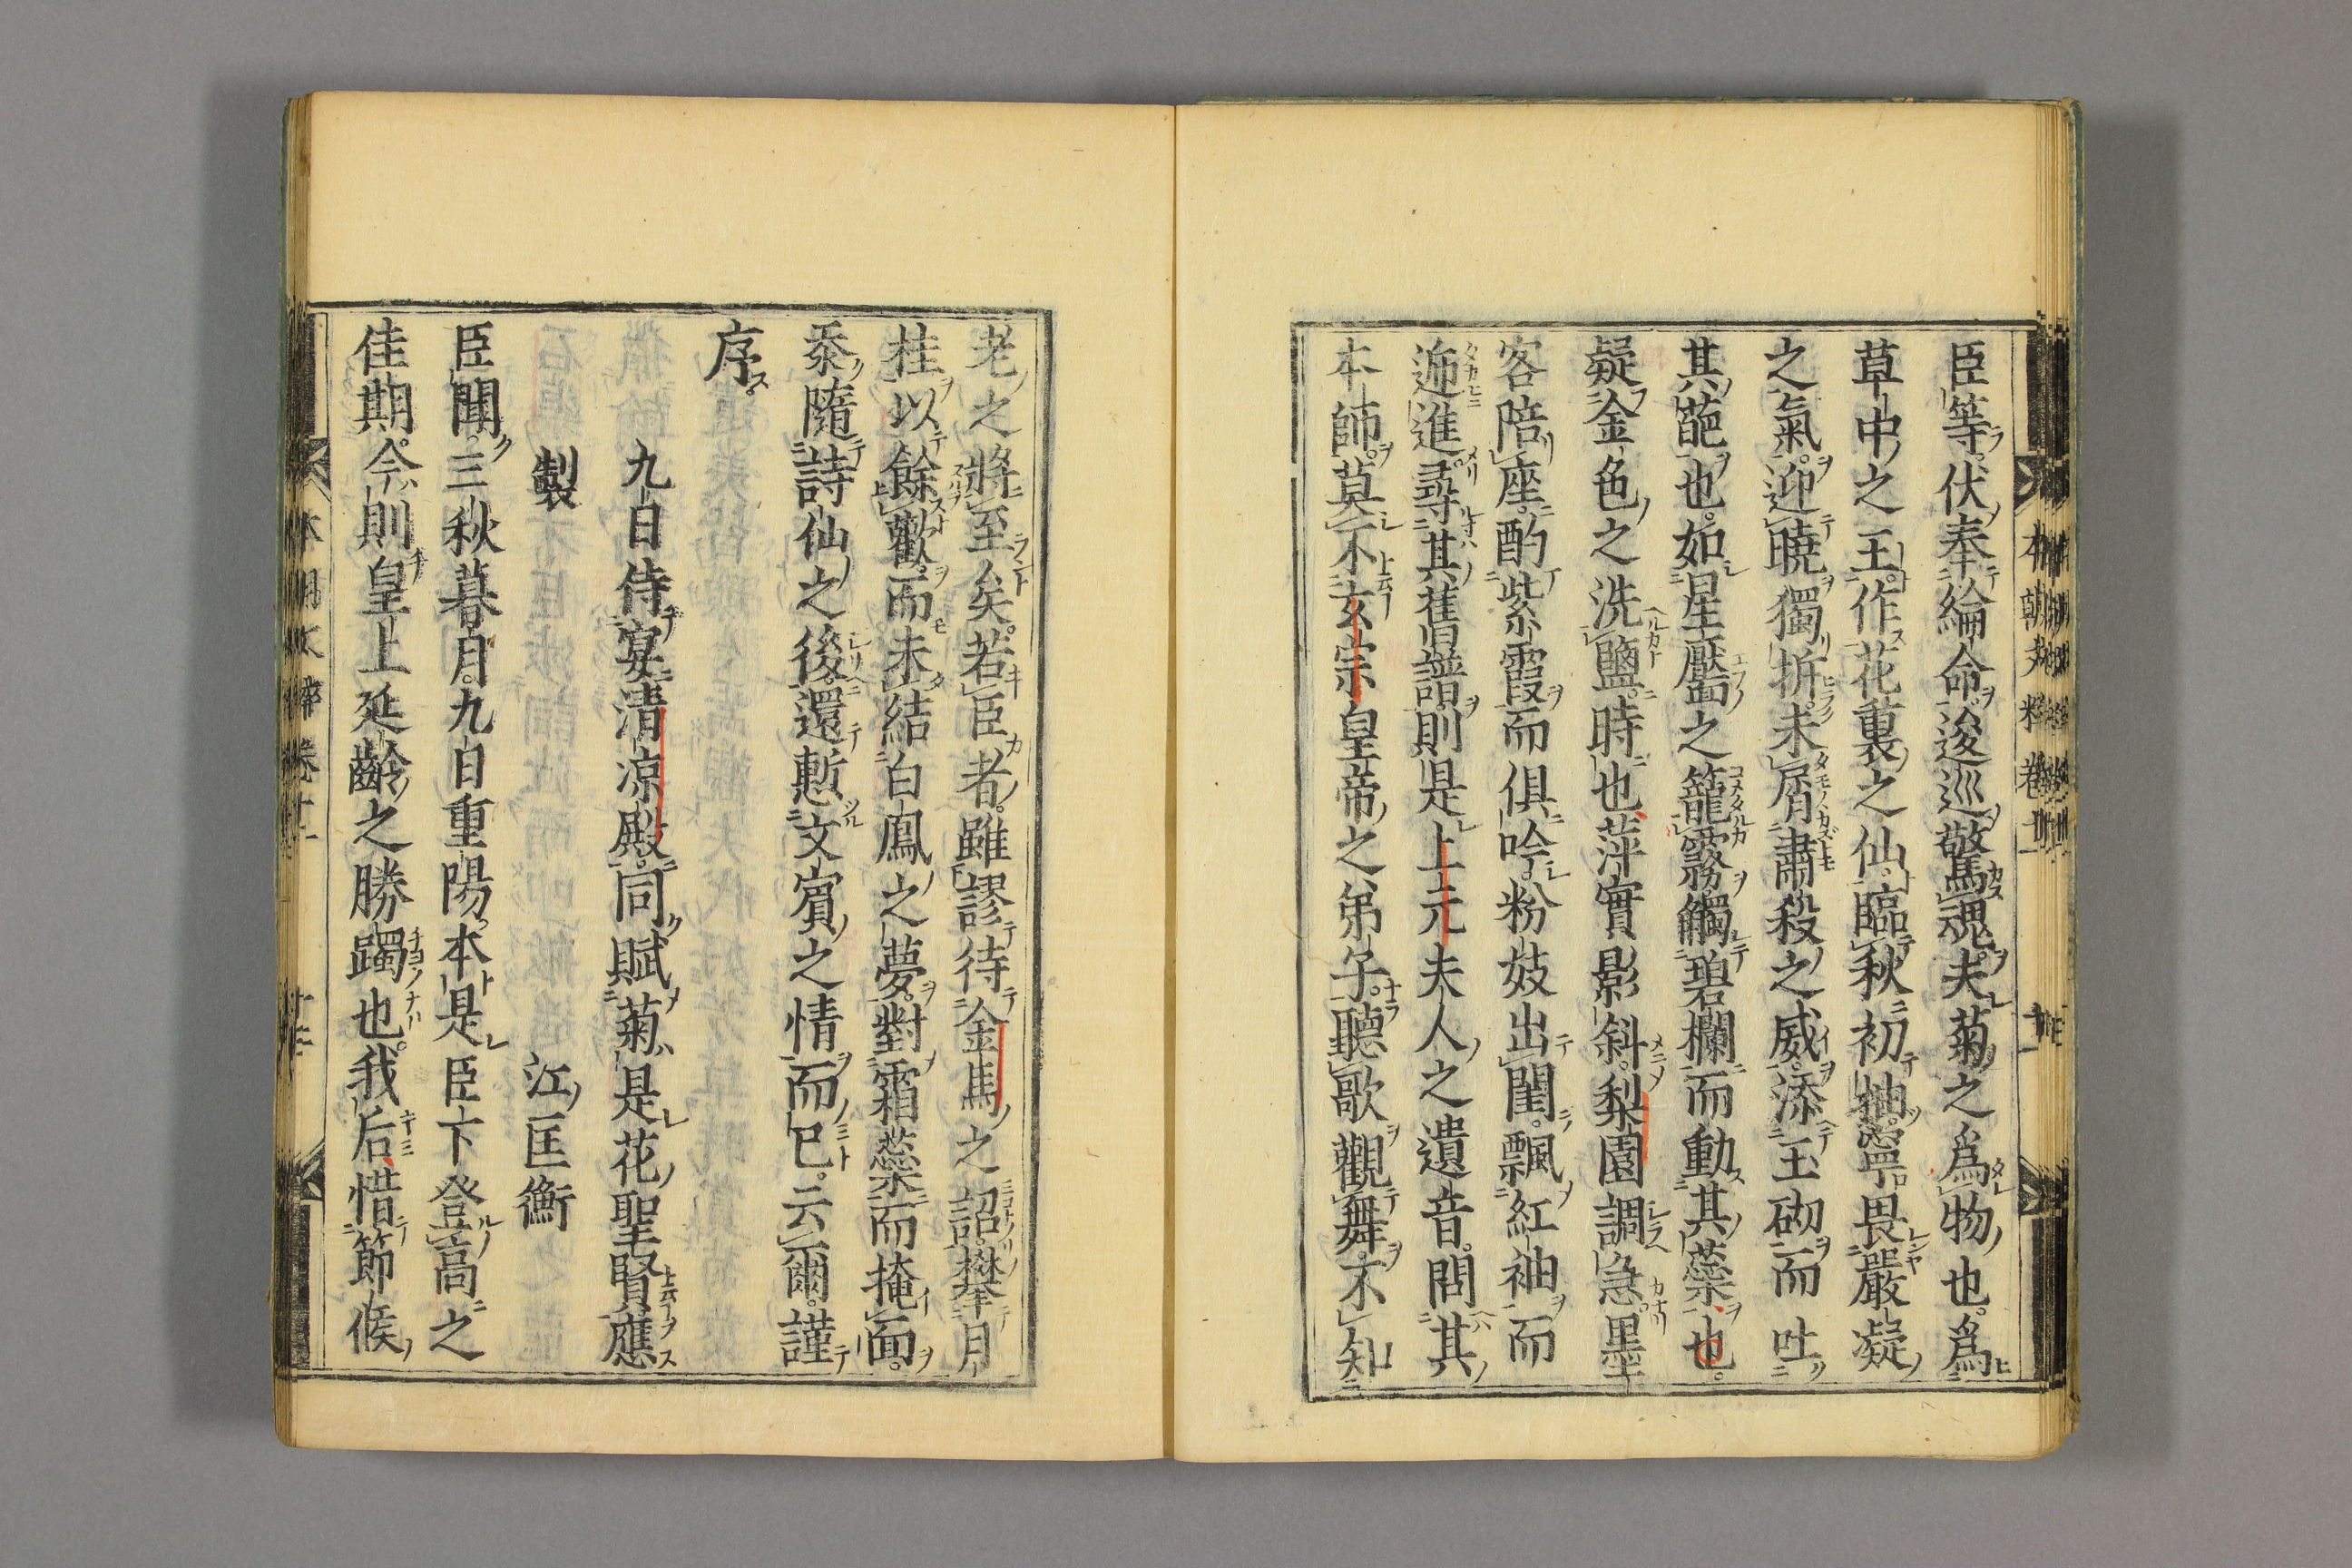 臣等伏奉綸命逡巡驚魂夫菊之爲物也爲
草中之王作花裏之仙臨秋初抽寧畏嚴凝
之氣迎曉獨拆未屑肅殺之威添玉砌而吐
其葩也如星靨之籠霧觸碧欄而動其蘂也
疑金色之洗鹽時也萍實影斜梨園調急墨
客陪座酌紫霞而俱吟粉妓出閨飄紅袖而
遞進尋其舊譜則是上元夫人之遺音問其
本師莫不玄宗皇帝之弟子聽歌觀舞不知
老之將至矣若臣者雖謬待金馬之詔攀月
桂以餘歡而未結白鳳之夢對霜蘂而掩面
忝隨詩仙之後還慙文賓之情而已云爾謹
序
九日侍宴清凉殿同賦菊是花聖賢應
製 江匡衡
臣聞三秋暮月九日重陽本是臣下登高之
佳期今則皇上延齡之勝躅也我后惜節候
本朝文粹 卷十一